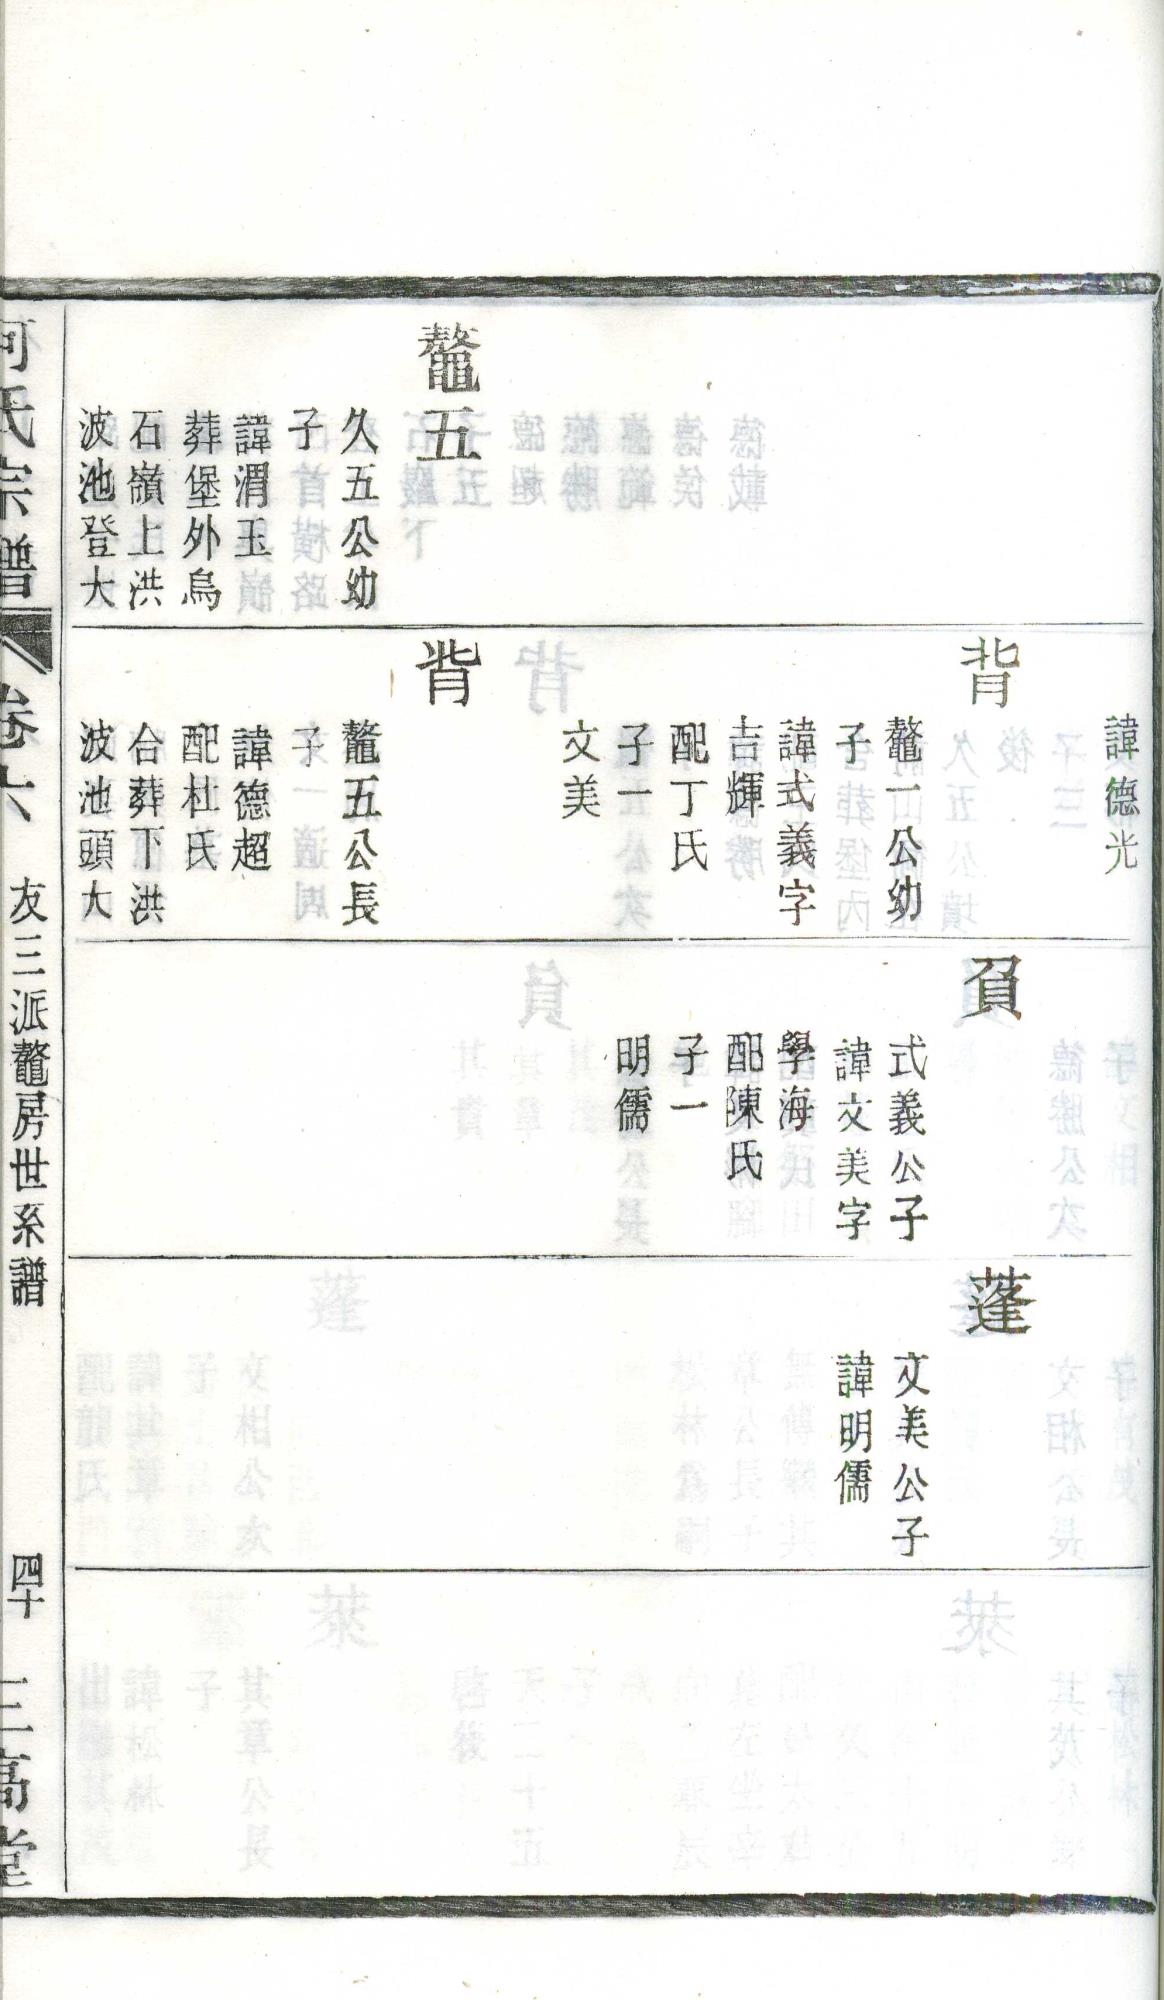 鼇五
久五公幼
子
諱渭玉
葬堡外烏
石嶺上洪
波池登大
諱德光
背
鼇一公幼
子
諱式義字
吉輝
配丁氏
子一
文美
背
鼇五公長
子
諱德超
配杜氏
合葬下洪
波池頭大
負
式義公子
諱文美字
學海
配陳氏
子一
明儒
蓬
文美公子
諱明儒
何氏宗譜
卷六
友三派鼇房世系譜
四十
三高堂